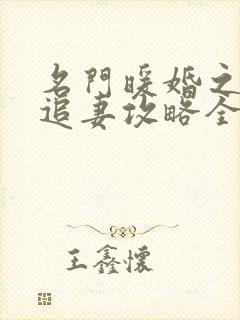 名門暖婚之
追妻攻略全
王鑫懷